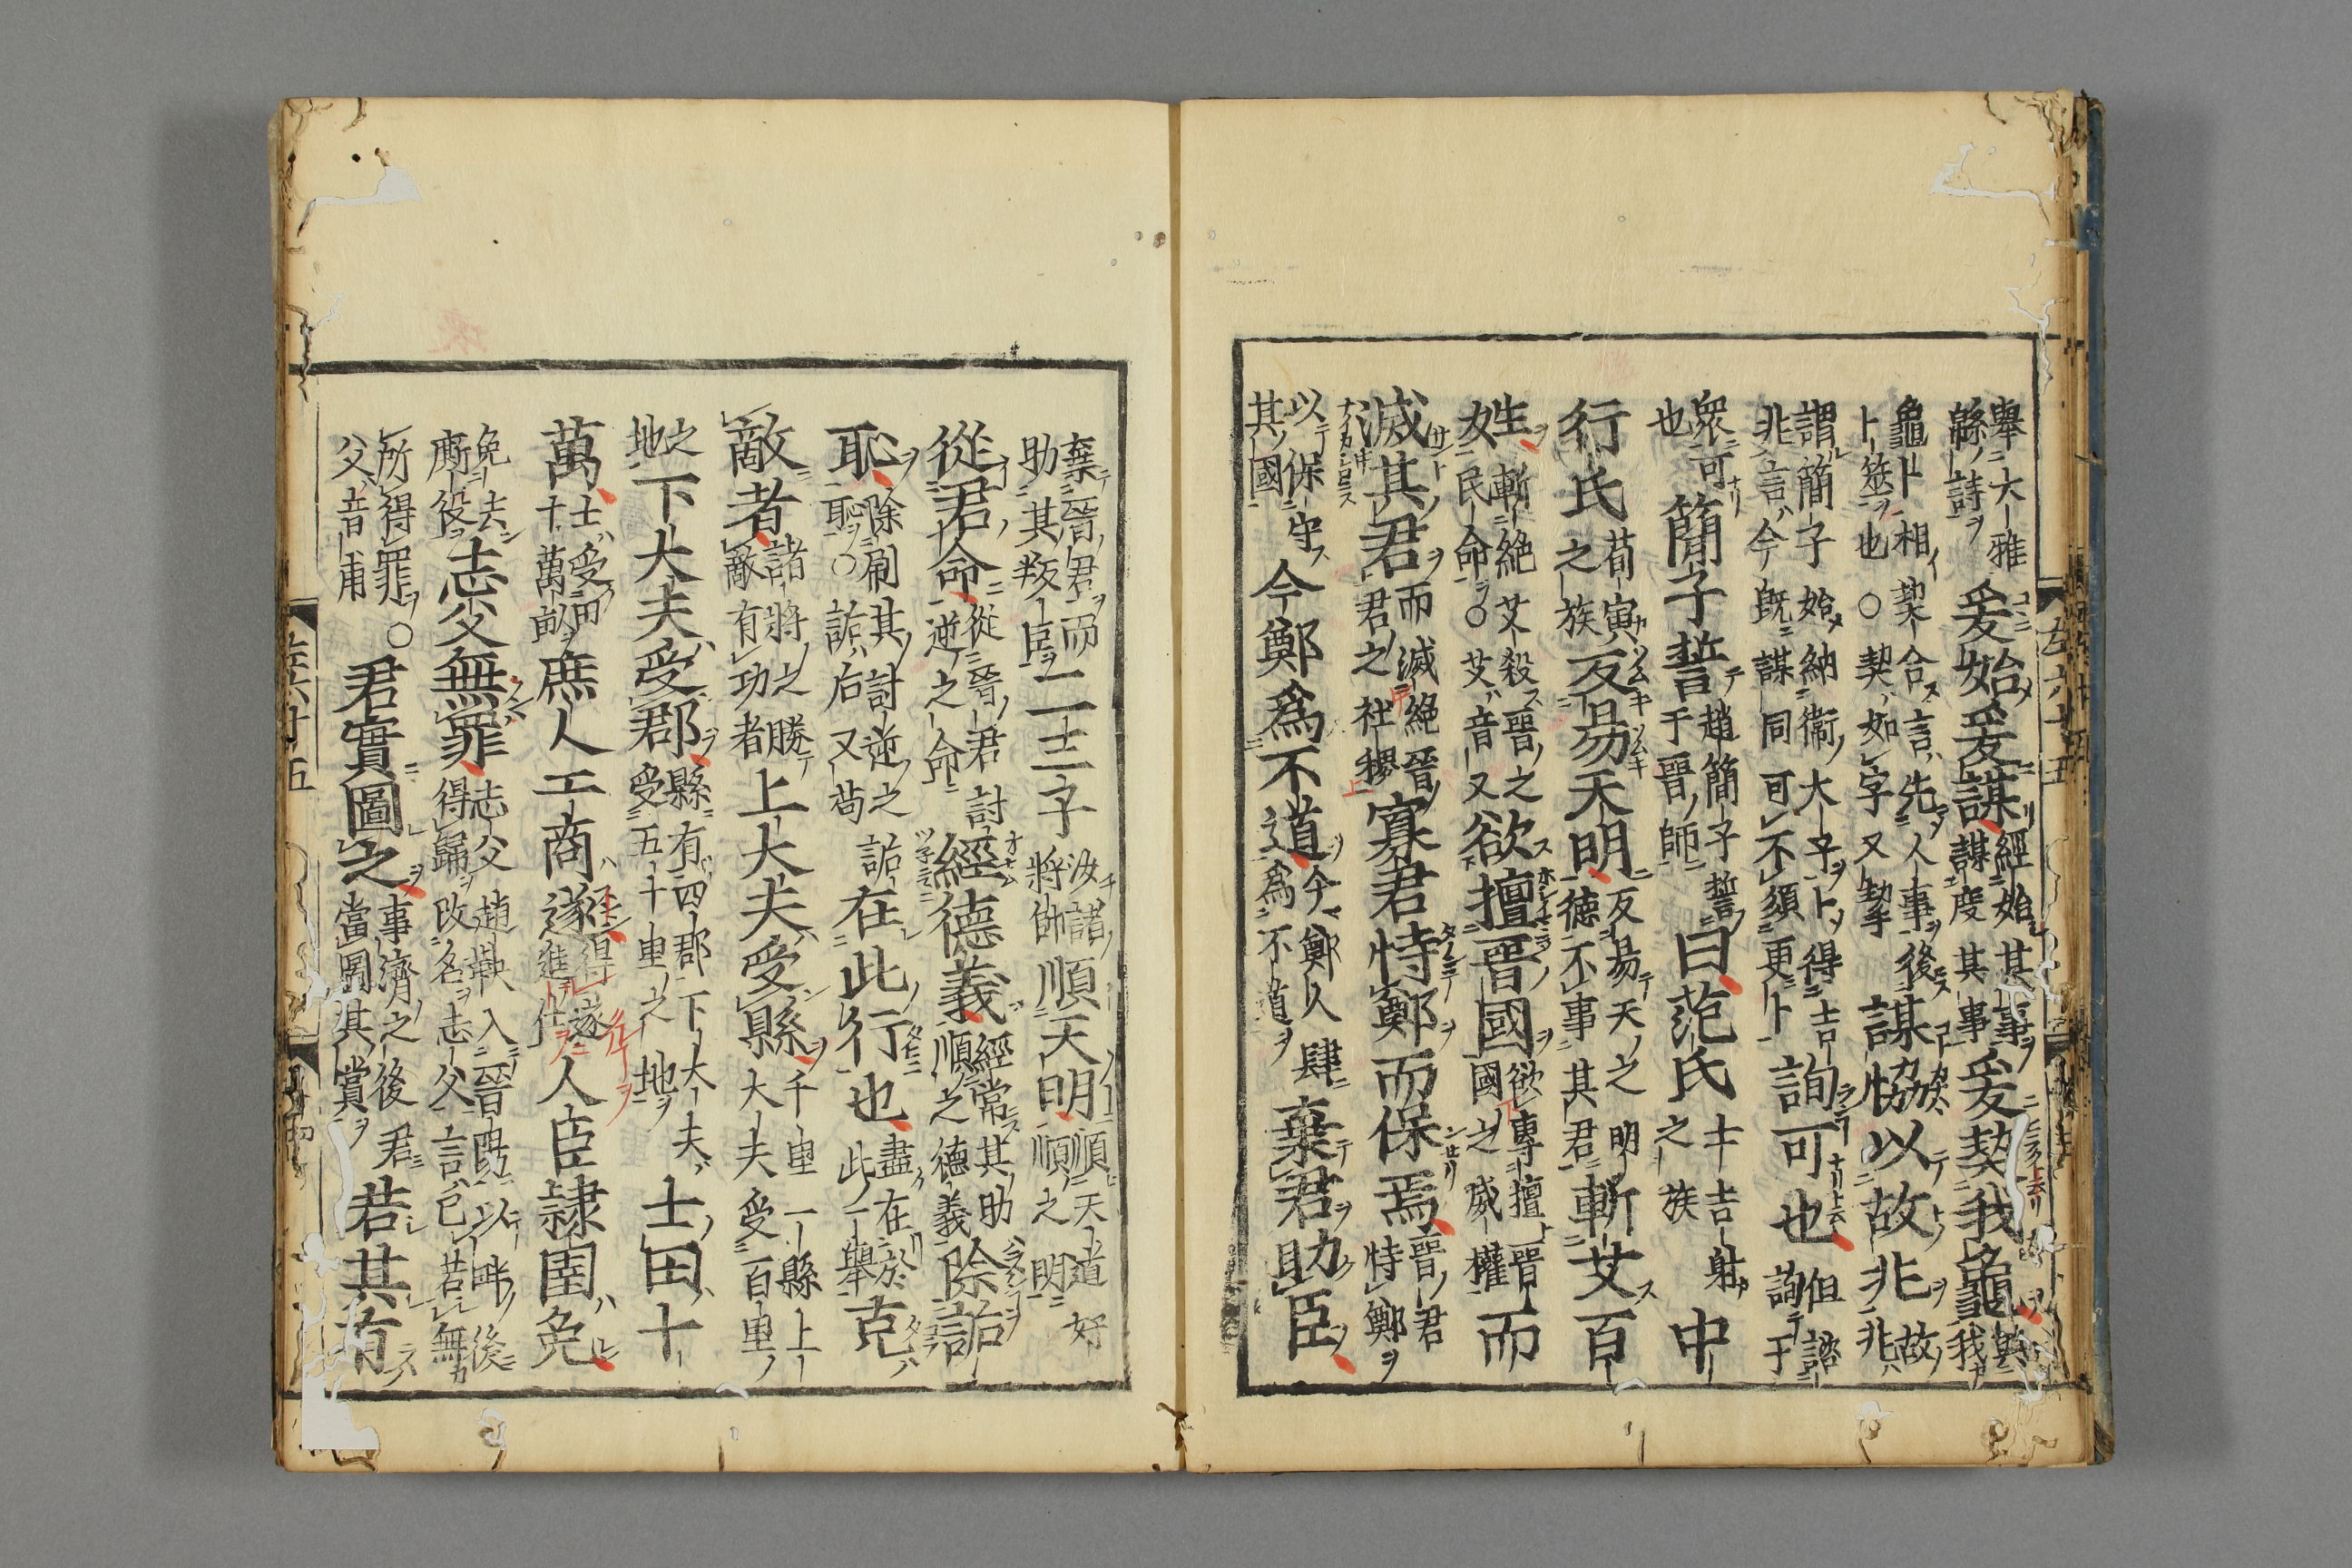 舉大雅緜詩爰始爰謀經始其事謀度其事爰契我龜與我
龜卜相契合言先人事後卜筮也○契如字又挈謀協以故兆故兆
謂簡子始納衞大子卜得吉兆言今既謀同可不須更卜詢可也但諮詢于
衆可也簡子誓趙簡子誓于晉師曰范氏士吉射之族中
行氏荀寅之族反易天明反易天之明德不事其君斬艾百
姓斬絶艾殺晉之民命○艾音又欲擅晉國欲專擅晉國之威權而
滅其君而滅絶晉君之社稷寡君恃鄭而保焉晉君恃鄭
以保守其國今鄭爲不道今鄭人肆爲不道棄君助臣
棄晉君而助其叛臣二三子汝諸將帥順天明順天道順之明好
從君命從晉君討逆之命經德義經常其助順之德義除詬
恥除刷其討逆之恥○詬后又苟詬在此行也盡在於此一舉克
敵者諸將之勝敵有功者上大夫受縣千里一縣上大夫受百里
之地下大夫受郡縣有四郡下大夫受五十里之地士田十
萬士受田十萬畝庶人工商遂得遂進仕人臣隷圉免
免去廝役志父無罪志父趙鞅入晉既以畔後得歸改名志父言己若無
所得罪○父音甫君實圖之事濟之後君當圖其賞若其有